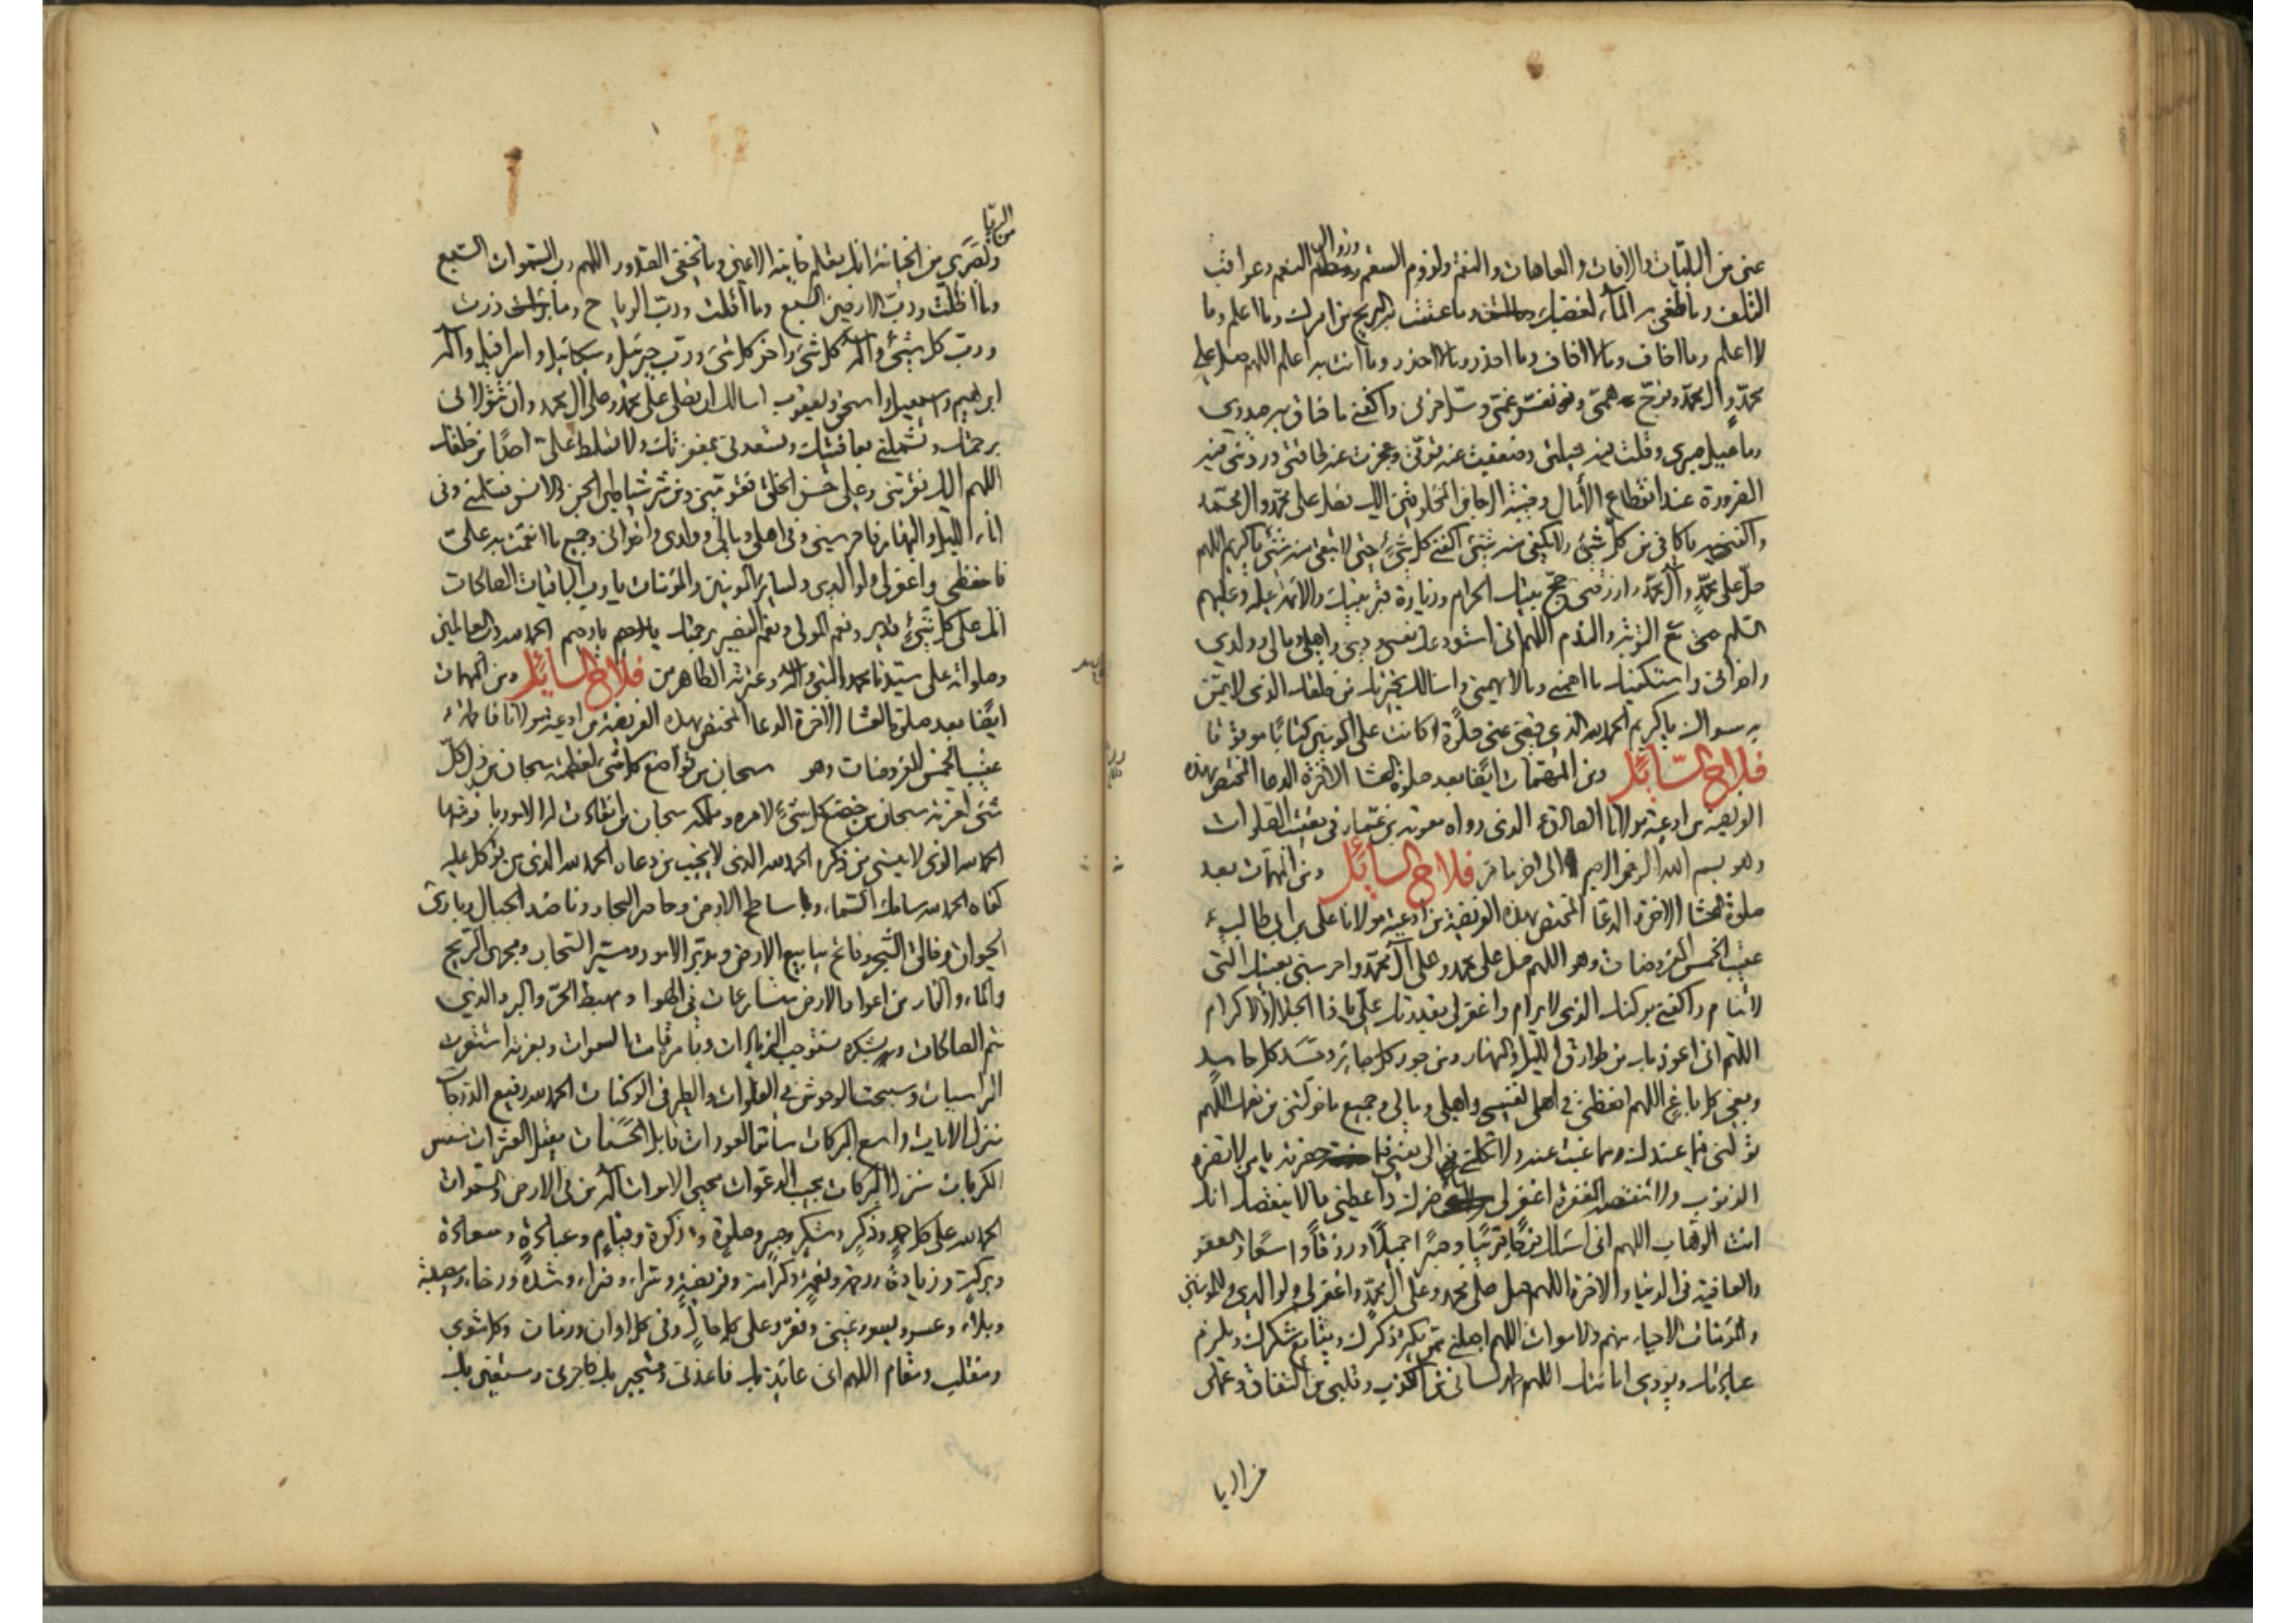 عني من البليات والافات والعاهات والنقم ولزوم السقم وزوال النعم وعواقب
التلف وما طغى به الماء لغضبك وما عتت به الريح من امرك وما اعلم وما
لا اعلم وما اخاف وما لا اخاف وما احذر وما لا احذر وما انت به اعلم اللهم صل على
محمد وال محمد وفرج همي ونفس غمي وسل حزني واكفني ما ضاق به صدري
وما عيل به صبري وقلت فيه حيلتي وضعفت عنه قوتي وعجزت عنه طاقتي وردتني فيه
الضرورة عند انقطاع الآمال وخيبة الرجاء من المخلوقين اليك فصل على محمد وال محمد
واكفنيه يا كافي من كل شيء ولا يكفي منه شيء اكفني كل شيء حتى لا يبقى منه شيء يا كريم اللهم
صل على محمد وآل محمد وارزقني حج بيتك الحرام وزيارة قبر نبيك والائمة عليه وعليهم
السلم مع التوبة والندم اللهم اني استودعك نفسي وديني واهلي ومالي وولدي
واخواني واستكفيك ما اهمني وما لا يهمني واسالك بخيرتك من خلقك الذي لا يمن
به سواك يا كريم الحمد لله الذي قضى عني صلوة كانت على المؤمنين كتابا موقوتا
فلاح السائل ومن المهمات ايضا بعد صلوة العشا الاخرة الدعا المختص بهذه
الفريضة من ادعية مولانا الصادق الذي رواه معوية بن عمار في تعقيب الصلوات
وهو بسم الله الرحمن الرحيم الى اخر ما مر فلاح السائل ومن المهمات بعد
صلوة العشا الاخرة الدعا المختص بهذه الفريضة من ادعية مولانا علي بن ابي طالب ع
عقيب الخمس المفروضات وهو اللهم صل على محمد وعلى آل محمد واحرسني بعينك التي
لا تنام واكفني بركنك الذي لا يرام واغفر لي بقدرتك علي يا ذا الجلال والاكرام
اللهم اني اعوذ بك من طوارق الليل والنهار ومن جور كل جائر وحسد كل حاسد
وبغي كل باغ اللهم احفظني في نفسي واهلي ومالي وجميع ما خولتني من نعمك اللهم
تولني فيما عندك ومما غبت عنه ولا تكلني الى نفسي فيما حضرته يا من لا تضره
الذنوب ولا تنقصه المغفرة اغفر لي ما لا يضرك واعطني ما لا ينقصك انك
انت الوهاب اللهم اني اسالك فرجا قريبا وصبرا جميلا ورزقا واسعا والعفو
والعافية في الدنيا والاخرة اللهم صل على محمد وعلى آل محمد واغفر لي ولوالدي وللمؤمنين
والمؤمنات الاحياء منهم والاموات اللهم اجعلني ممن يكثر ذكرك ويتابع شكرك ويلزم
عبادتك ويؤدي امانتك اللهم طهر لساني من الكذب وقلبي من النفاق وعملي
من الريا
من الريا
وبصري من الخيانة انك تعلم خاينة الاعين وما تخفي الصدور اللهم رب السموات السبع
وما اظلت ورب الارضين السبع وما اقلت ورب الرياح وما ذرت
ورب كل شيء واله كل شيء واخر كل شيء ورب جبرئيل وميكائيل واسرافيل واله
ابرهيم واسمعيل واسحق ويعقوب اسالك ان تصلي على محمد وعلى آل محمد وان تتولاني
برحمتك وتشملني بعافيتك وتسعدني بمغفرتك ولا تسلط علي احدا من خلقك
اللهم اليك فقربني وعلى حسن الخلق فقومني ومن شر شياطين الجن والانس فسلمني وفي
اناء الليل والنهار فاحرسني وفي اهلي ومالي وولدي واخواني وجميع ما انعمت به علي
فاحفظني واغفر لي ولوالدي ولساير المومنين والمومنات يا ولي الباقيات الصالحات
انك على كل شيء قدير ونعم المولى ونعم النصير برحمتك يا رحيم الحمد لله رب العالمين
وصلواته على سيدنا محمد النبي واله وعترته الطاهرين فلاح السائل ومن المهمات
ايضا بعد صلوة العشا الاخرة الدعا المختص بهذه الفريضة من ادعية مولاتنا فاطمة ع
عقيب الخمس المفروضات وهو سبحان من تواضع كل شيء لعظمته سبحان من ذل كل
شيء لعزته سبحان من خضع كل شيء لامره وملكه سبحان من انقادت له الامور بازمتها
الحمد لله الذي لا ينسى من ذكره الحمد لله الذي لا يخيب من دعاه الحمد لله الذي من توكل عليه
كفاه الحمد لله سامك السماء وساطح الارض وحاصر البحار وناضد الجبال وباري
الحيوان وخالق الشجر وفاتح ينابيع الارض ومدبر الامور ومسير السحاب ومجري الريح
والماء والنار من اغوار الارض متسارعات في الهوا ومهبط الحر والبرد الذي
بنعمته تتم الصالحات وبشكره تستوجب الزيادات وبامره قامت السموات وبعزته استقرت
الراسيات وسبحت الوحوش في الفلوات والطير في الوكنات الحمد لله رفيع الدرجات
منزل الايات واسع البركات ساتر العورات قابل الحسنات مقيل العثرات منفس
الكربات منزل البركات مجيب الدعوات محيي الاموات اله من في الارض والسموات
الحمد لله على كل حمد وذكر وشكر وصبر وصلوة وزكوة وقيام وعبادة وسعادة
وبركة وزيادة ورحمة ونعمة وكرامة وفريضة وسراء وضراء وشدة ورخاء ومصيبة
وبلاء وعسر ويسر وغنى وفقر وعلى كل حال وفي كل اوان وزمان وكل مثوى
ومنقلب ومقام اللهم اني عائذ بك فاعذني ومستجير بك فاجرني ومستعين بك